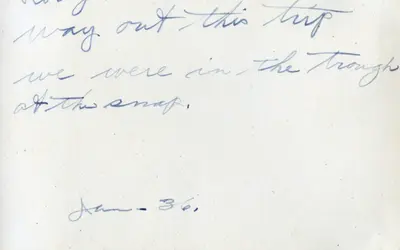 way out this trip
we were in the trough
at the snap.
Jan - 36.